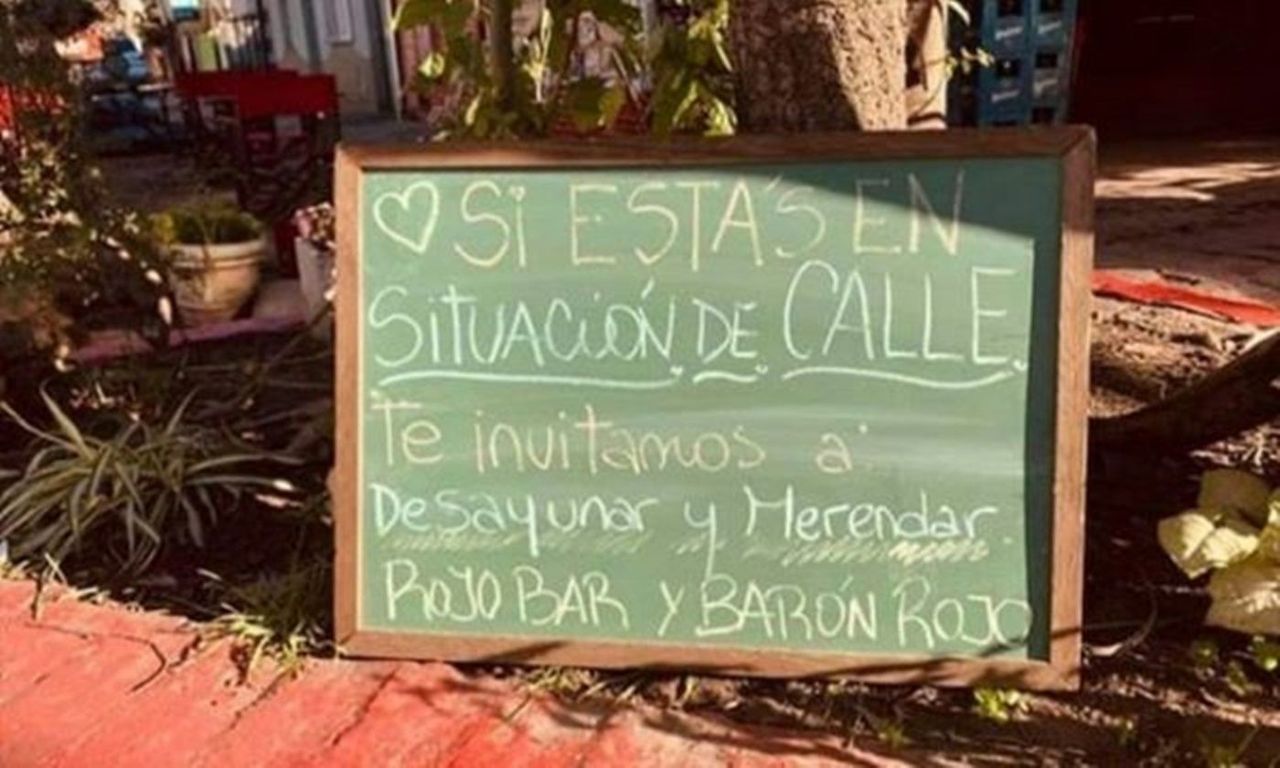 ♡ Si ESTÁS EN
SituACiÓN DE CALLE.
Te invitamos a:
Desayunar y Merendar.
ROJO BAR Y BARÓN ROJO